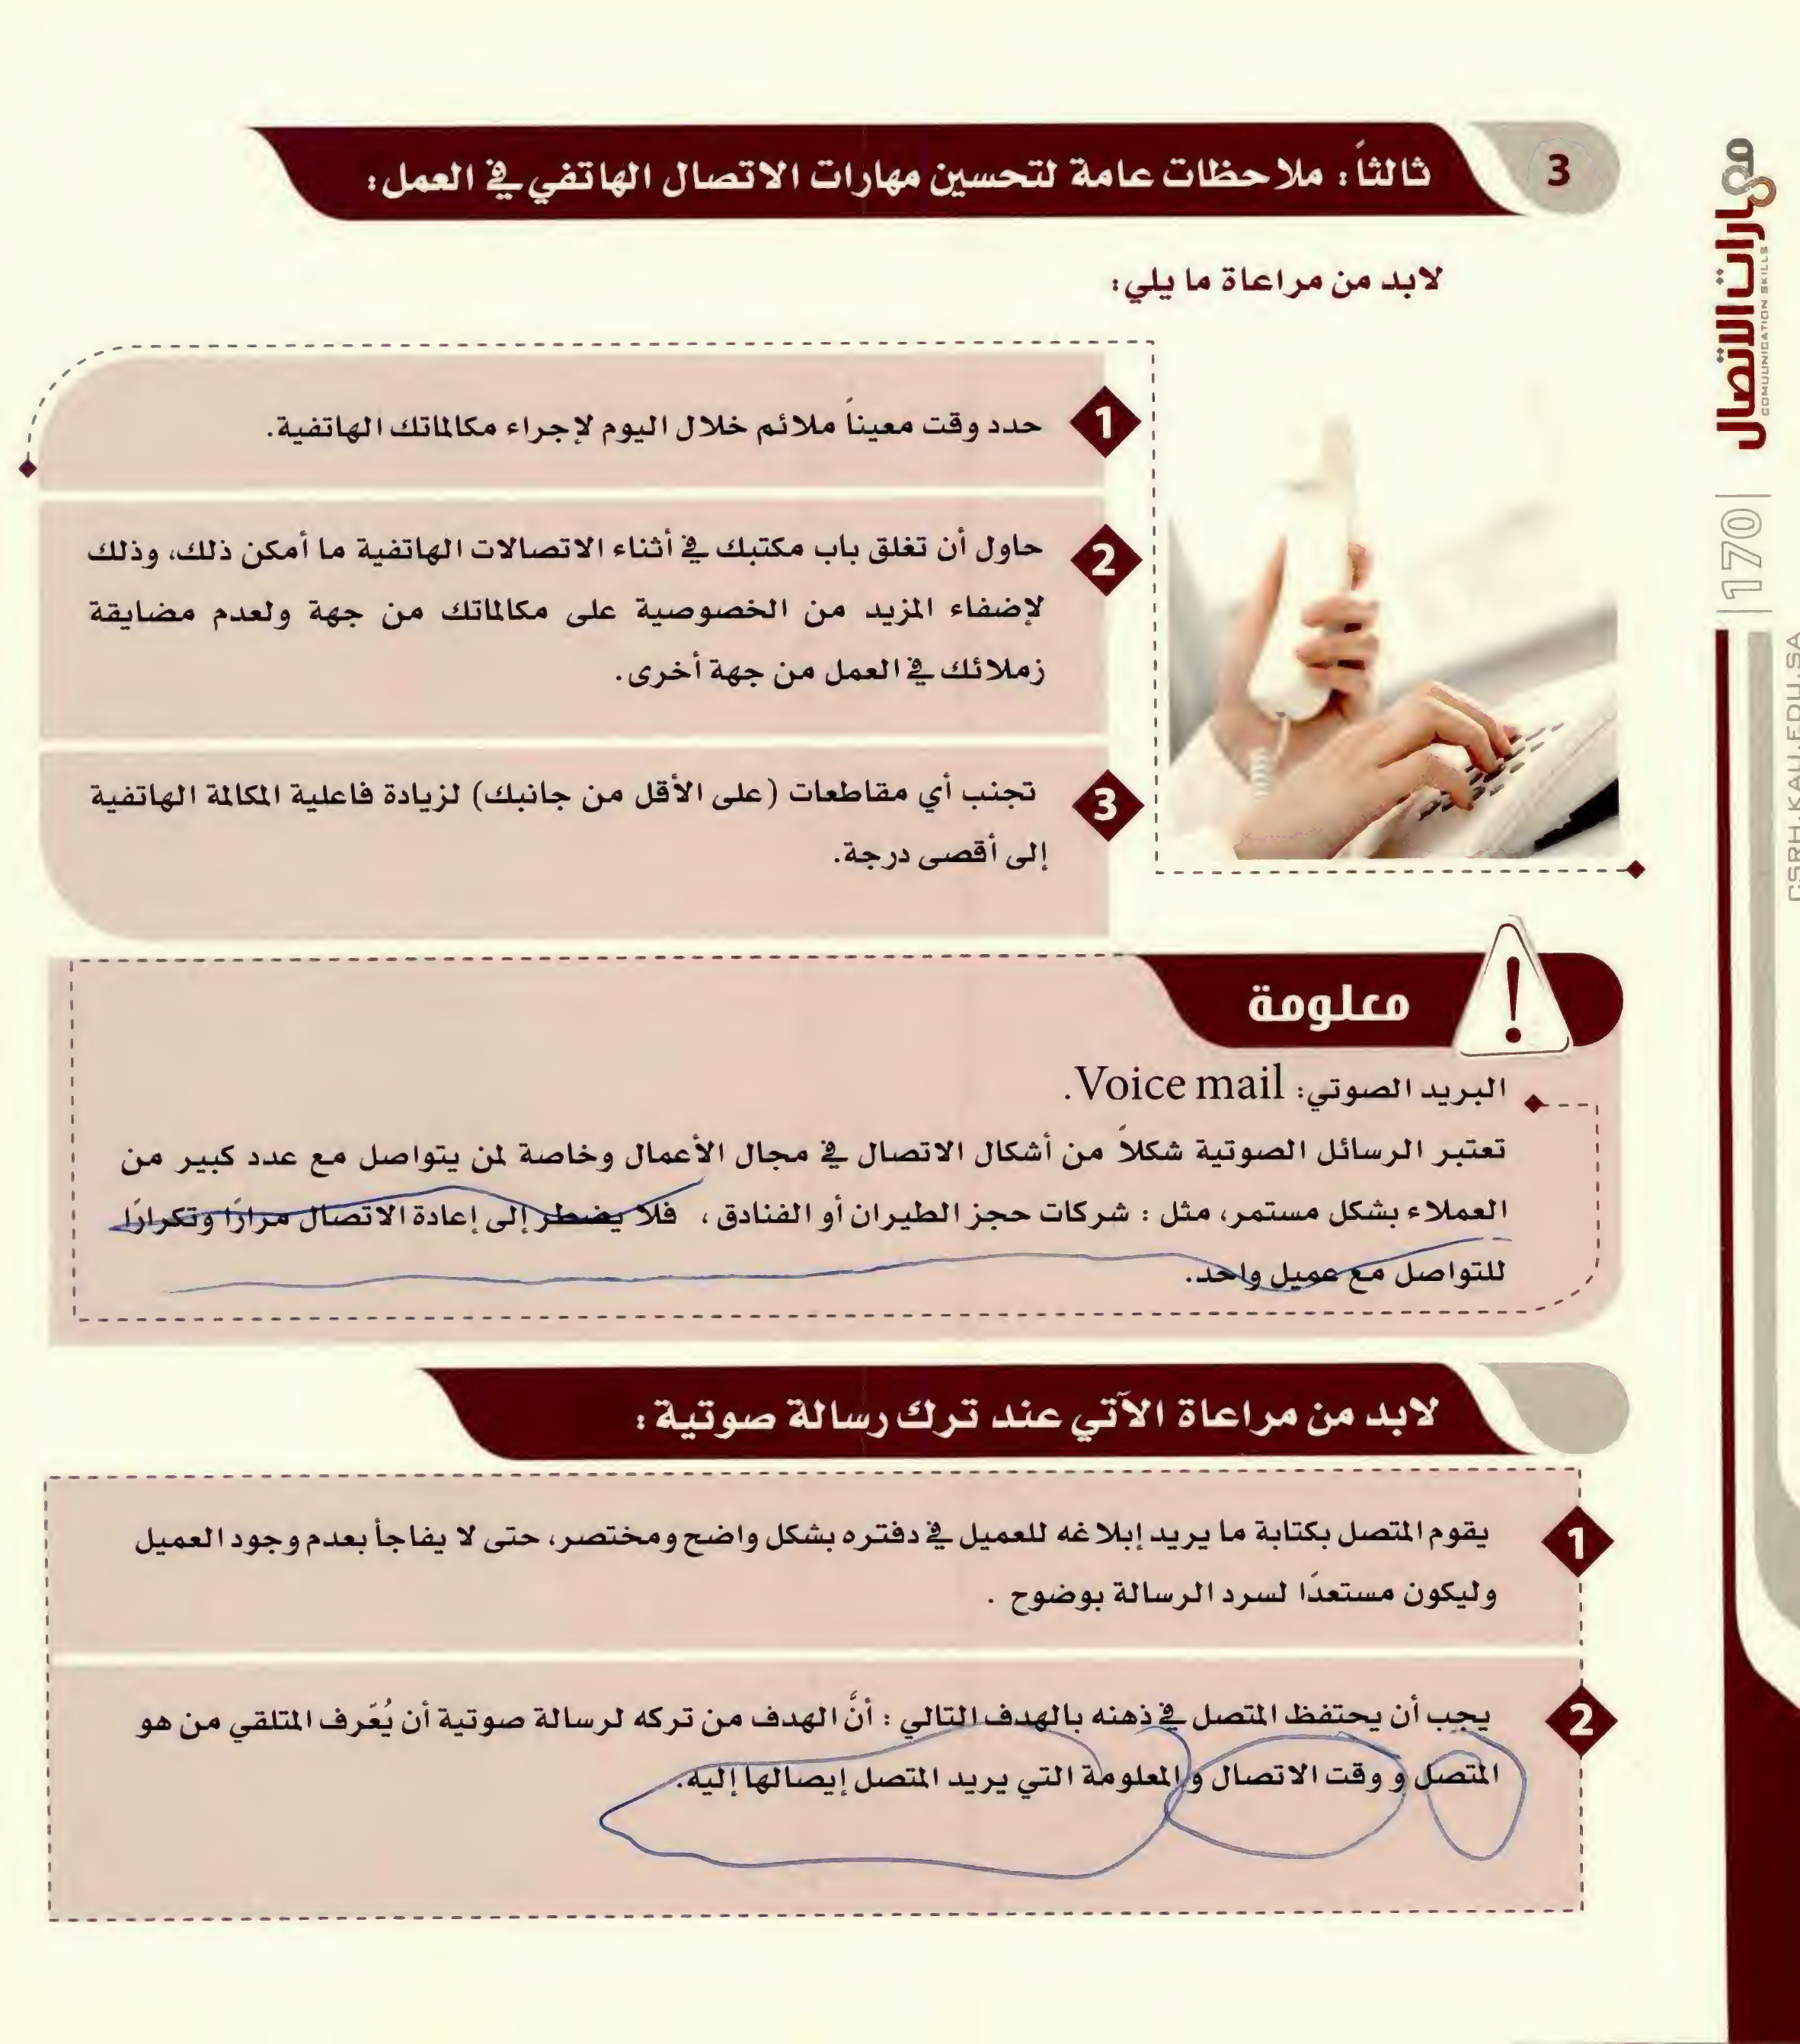 3
ثالثاً: ملاحظات عامة لتحسين مهارات الاتصال الهاتفي في العمل:
لابد من مراعاة ما يلي:
1
حدد وقت معيناً ملائم خلال اليوم لإجراء مكالماتك الهاتفية.
2
حاول أن تغلق باب مكتبك في أثناء الاتصالات الهاتفية ما أمكن ذلك، وذلك
لإضفاء المزيد من الخصوصية على مكالماتك من جهة ولعدم مضايقة
زملائك في العمل من جهة أخرى.
3
تجنب أي مقاطعات (على الأقل من جانبك) لزيادة فاعلية المكالمة الهاتفية
إلى أقصى درجة.
معلومة
البريد الصوتي: Voice mail.
تعتبر الرسائل الصوتية شكلاً من أشكال الاتصال في مجال الأعمال وخاصة لمن يتواصل مع عدد كبير من
العملاء بشكل مستمر، مثل : شركات حجز الطيران أو الفنادق ، فلا يضطر إلى إعادة الاتصال مرارًا وتكرارًا
للتواصل مع عميل واحد.
لابد من مراعاة الآتي عند ترك رسالة صوتية :
1
يقوم المتصل بكتابة ما يريد إبلاغه للعميل في دفتره بشكل واضح ومختصر، حتى لا يفاجأ بعدم وجود العميل
وليكون مستعدًا لسرد الرسالة بوضوح .
2
يجب أن يحتفظ المتصل في ذهنه بالهدف التالي : أنَّ الهدف من تركه لرسالة صوتية أن يُعّرف المتلقي من هو
المتصل و وقت الاتصال و المعلومة التي يريد المتصل إيصالها إليه.
مهارات الاتصال
COMUUNICATION SKILLS
|170|
CSRH.KAU.EDU.SA